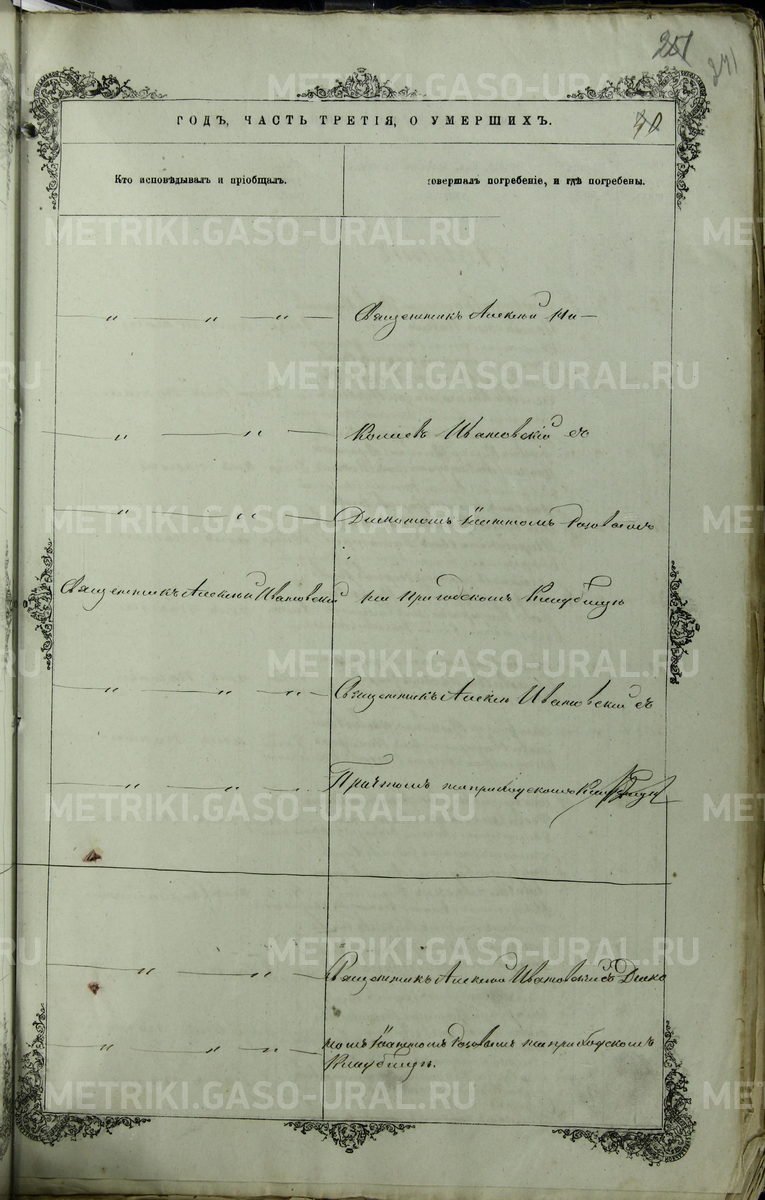 251
241
ГОДЪ, ЧАСТЬ ТРЕТІЯ, О УМЕРШИХЪ.
40
Кто исповѣдывалъ и пріобщалъ.
совершалъ погребеніе, и гдѣ погребены.
METRIKI.GASO-URAL.RU
— „ — „ — „ — Священникъ Алексѣй Ни-
— „ — „ — колаевъ Ивановскій съ
— „ — „ — Діакономъ
Священникъ Алексѣй Ивановскій на приходскомъ кладбищѣ
— „ — „ — „ — Священникъ Алексѣй Ивановскій съ
— „ — „ — „ — Причтомъ на приходскомъ кладбищѣ
— „ — „ — Священникъ Алексѣй Ивановскій съ Діако
— „ — „ — „ — номъ на приходскомъ
кладбищѣ.